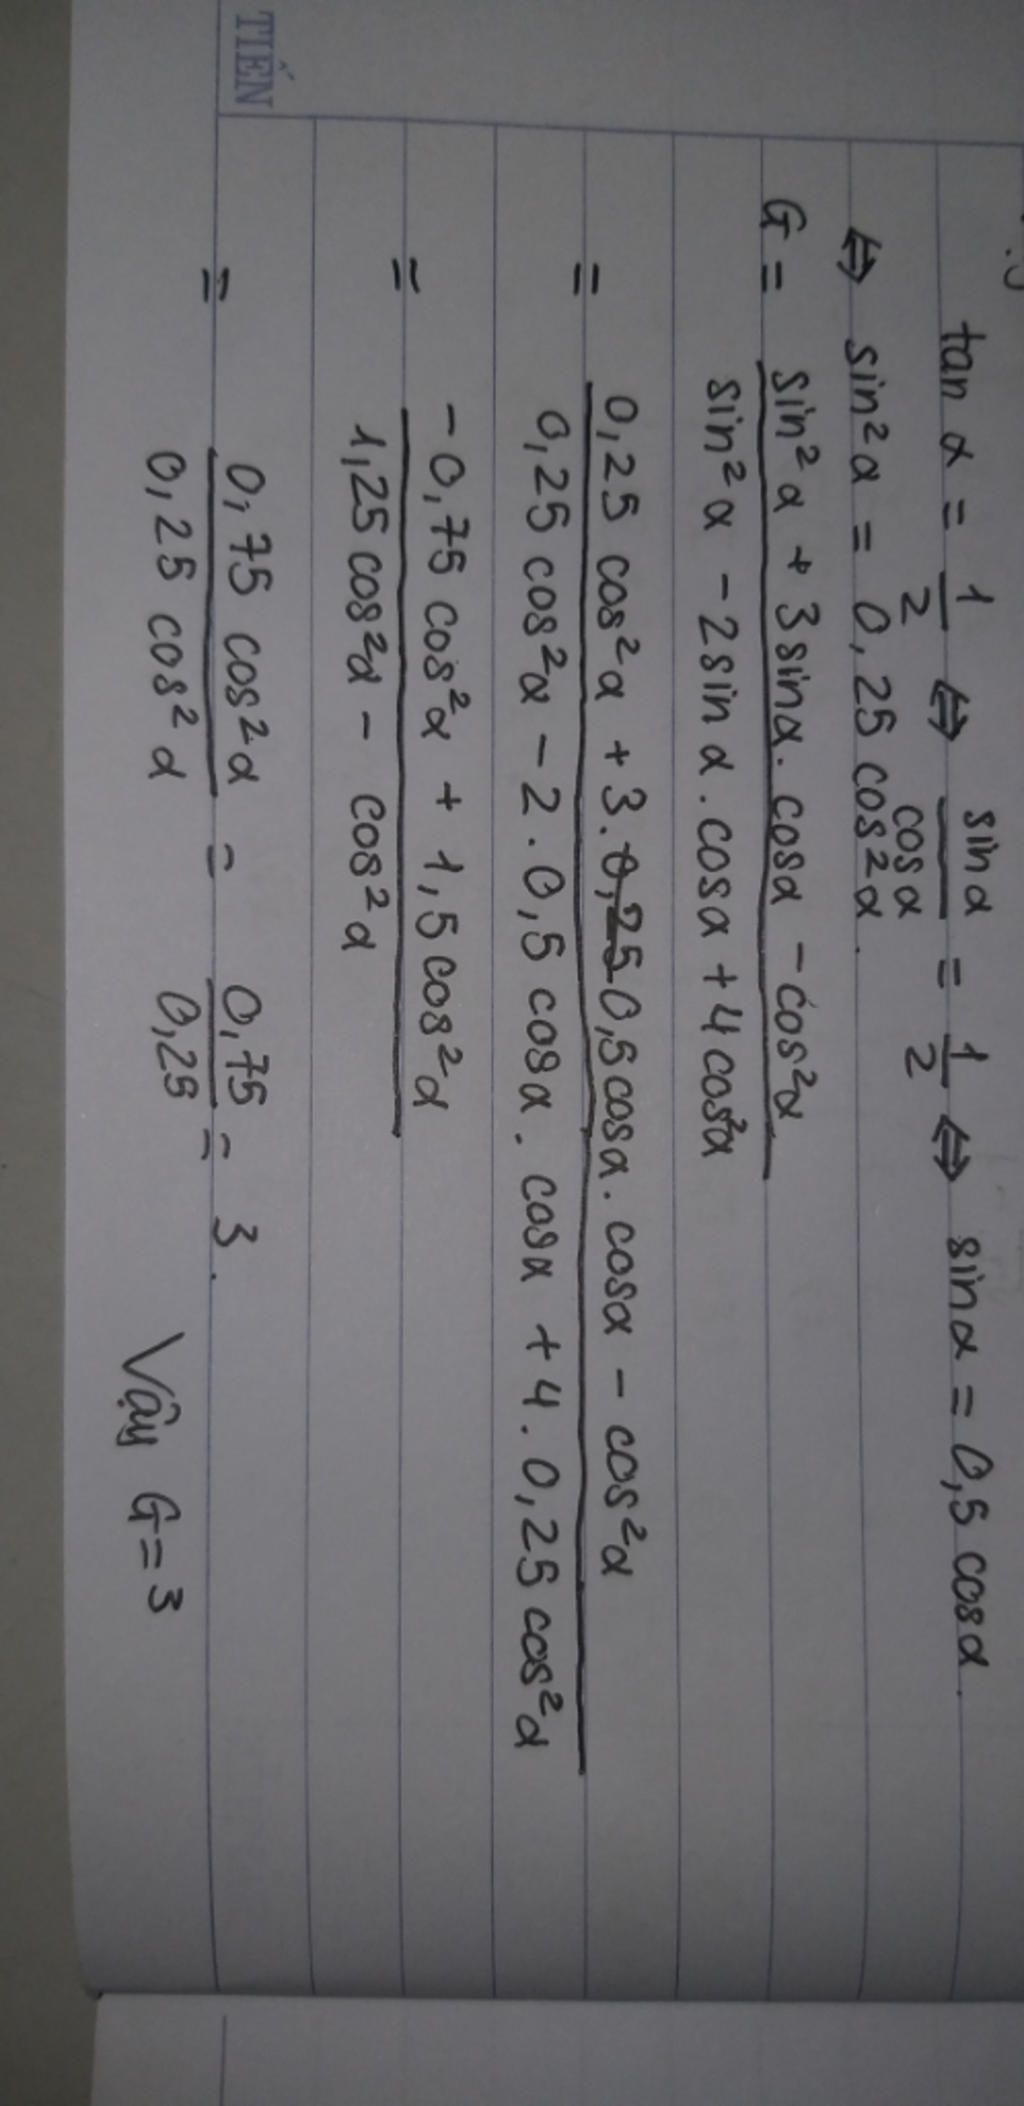 tan α = 1/2 ⇔ sin α / cos α = 1/2 ⇔ sin α = 0,5 cos α.
⇔ sin² α = 0,25 cos² α.
G = sin² α + 3 sin α . cos α - cos² α
sin² α - 2 sin α . cos α + 4 cos² α
= 0,25 cos² α + 3 . 0,5 cos α . cos α - cos² α
0,25 cos² α - 2 . 0,5 cos α . cos α + 4 . 0,25 cos² α
= - 0,75 cos² α + 1,5 cos² α
1,25 cos² α - cos² α
= 0,75 cos² α / 0,25 cos² α = 0,75 / 0,25 = 3.
Vậy G = 3
TIẾN